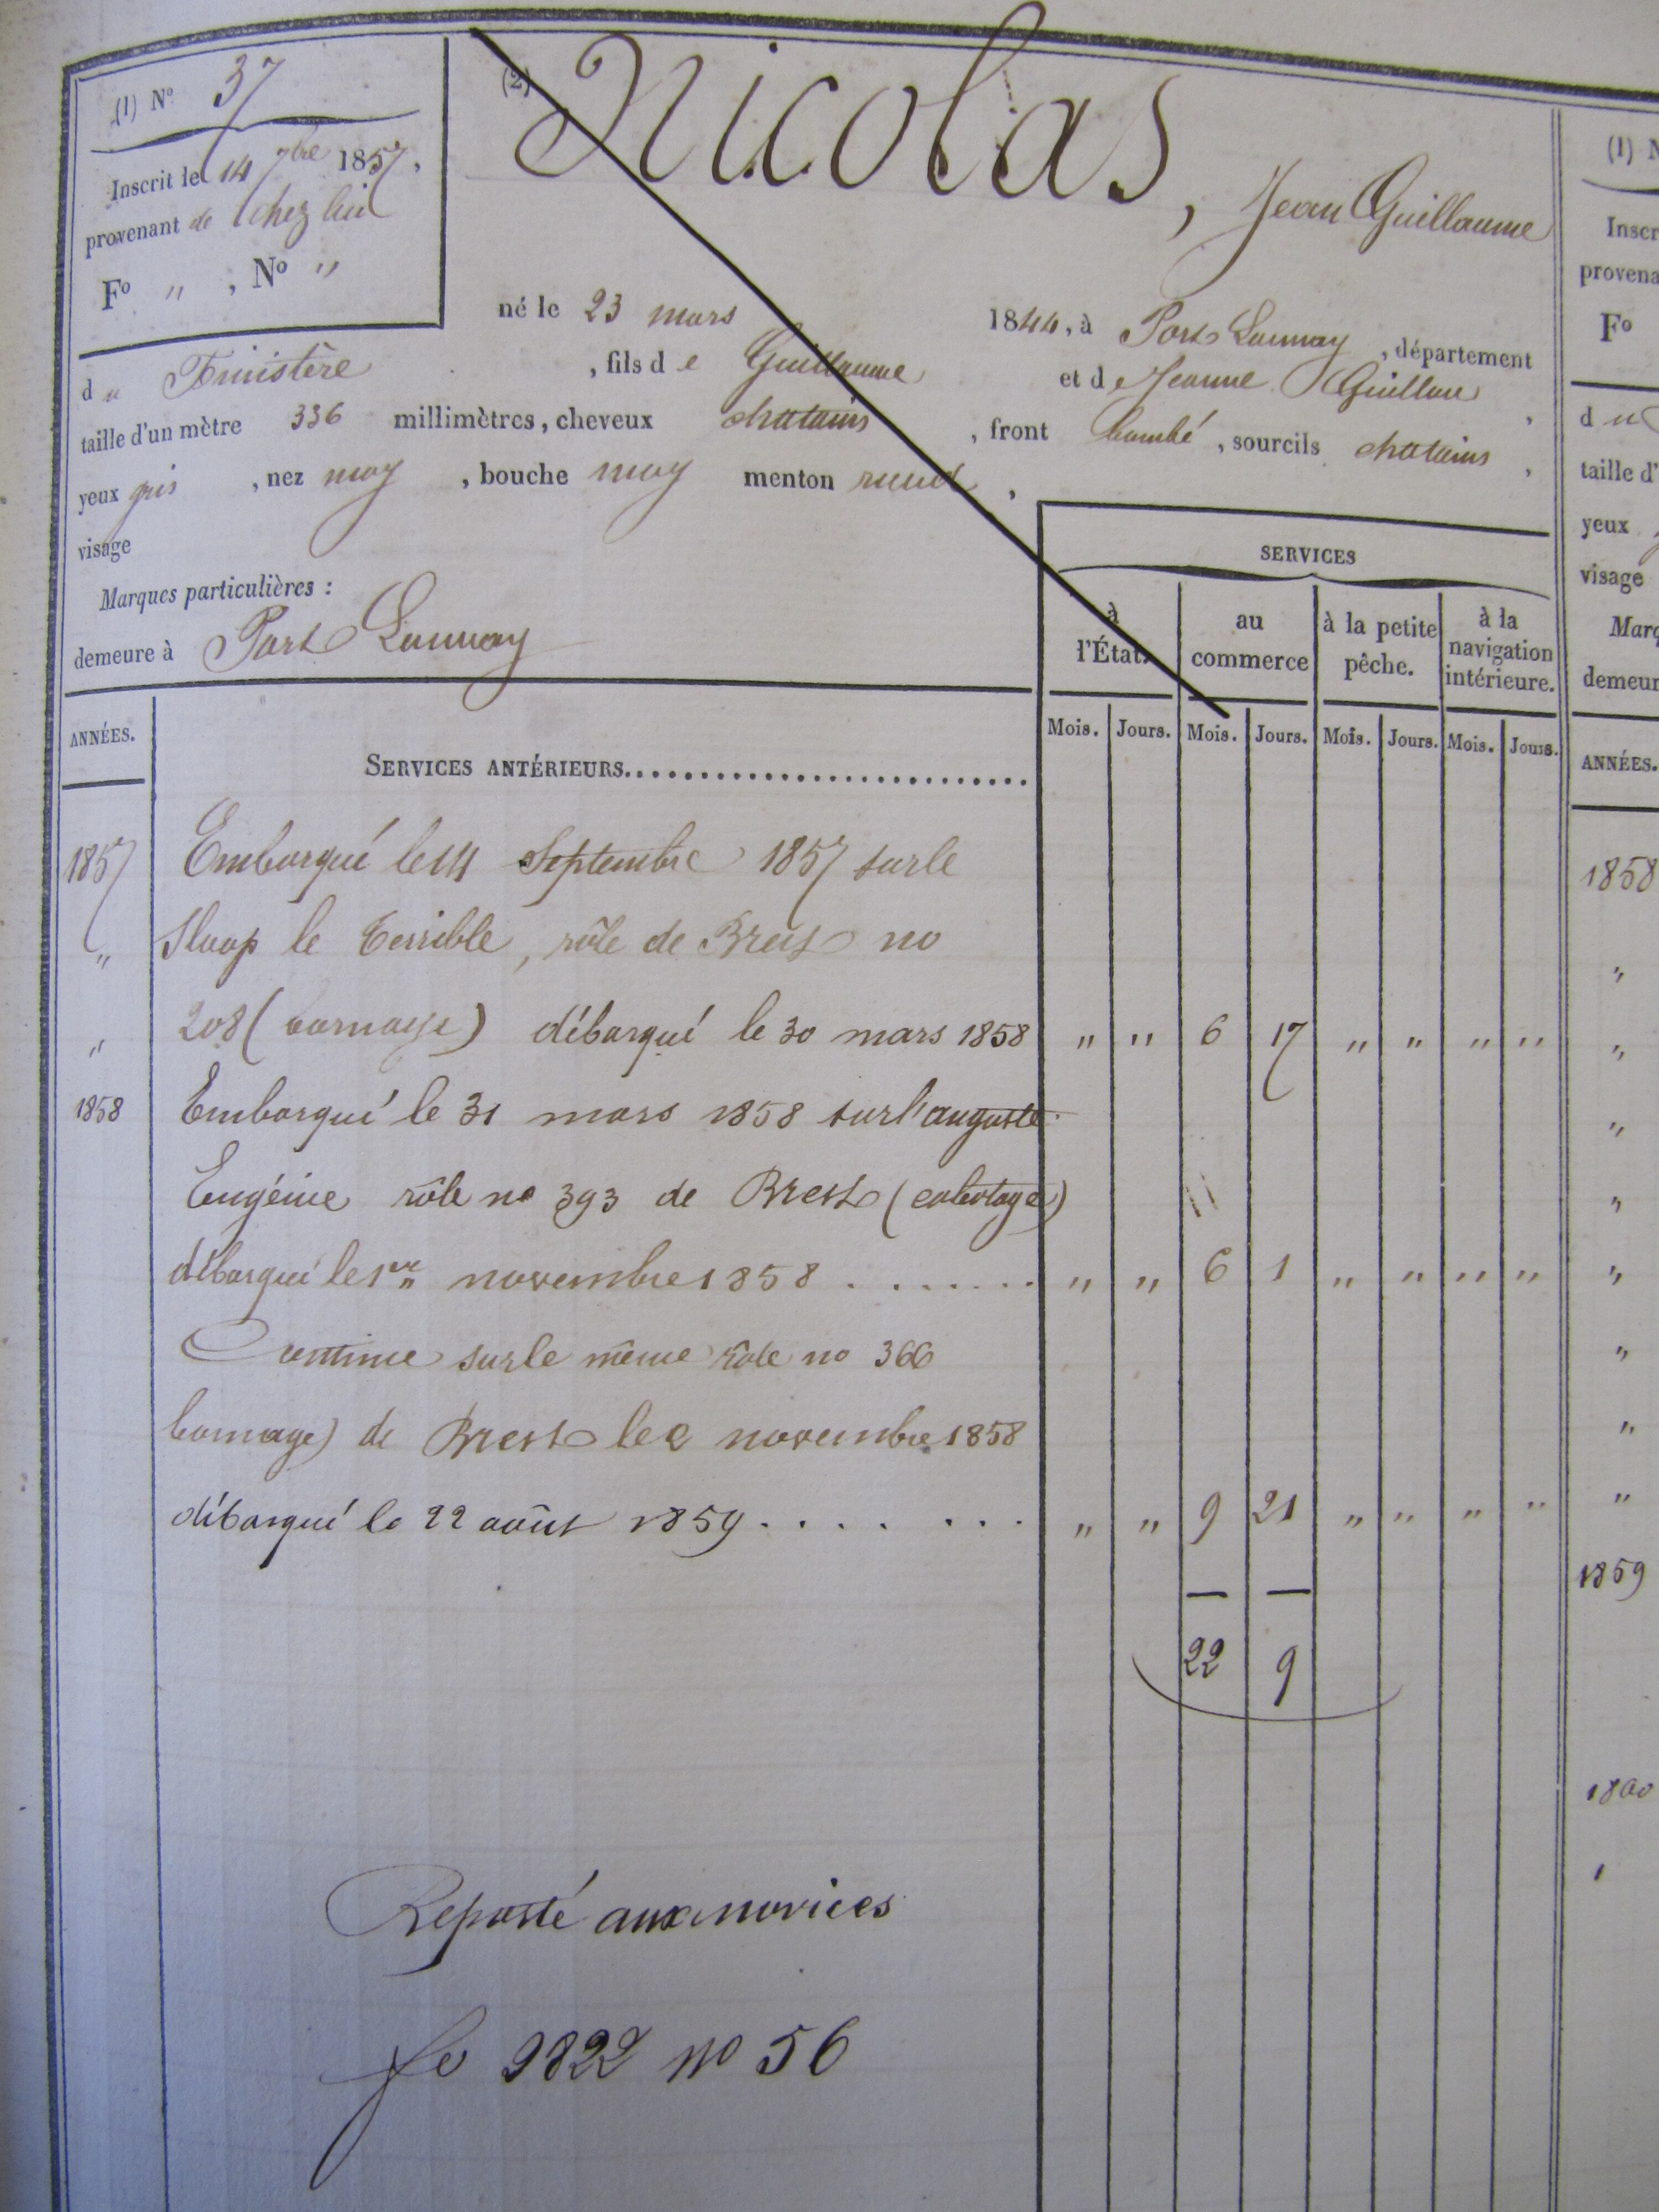 (1) Nº 37
Inscrit le 14 7bre 1857,
provenant de chez lui
Fº " , Nº "
(2) Nicolas, Jean Guillaume
né le 23 mars 1844, à Port Launay, département
du Finistère, fils de Guillaume et de Jeanne Guillou,
taille d'un mètre 336 millimètres, cheveux chatains, front bombé, sourcils chatains,
yeux gris, nez moy, bouche moy menton rond,
visage
Marques particulières :
demeure à Port Launay
SERVICES
à l'État. au commerce à la petite pêche. à la navigation intérieure.
ANNÉES. SERVICES ANTÉRIEURS Mois. Jours. Mois. Jours. Mois. Jours. Mois. Jours.
1857 Embarqué le 14 Septembre 1857 sur le
" Sloop le terrible, rôle de Brest no
" 208 (bornage) débarqué le 30 mars 1858 " " 6 17 " " " "
1858 Embarqué le 31 mars 1858 sur l'auguste
Eugénie rôle no 393 de Brest (cabotage)
débarqué le 1er novembre 1858 . . . . . . . " " 6 1 " " " "
Continue sur le même rôle no 366
bornage) de Brest le 2 novembre 1858
débarqué le 22 août 1859 . . . . . . . " " 9 21 " " " "
22 9
Reporté aux novices
fo 2822 no 56
(1) N
Inscr
provena
Fº
du
taille d'
yeux
visage
Marq
demeur
ANNÉES.
1858
"
"
"
"
"
"
"
"
1859
1860